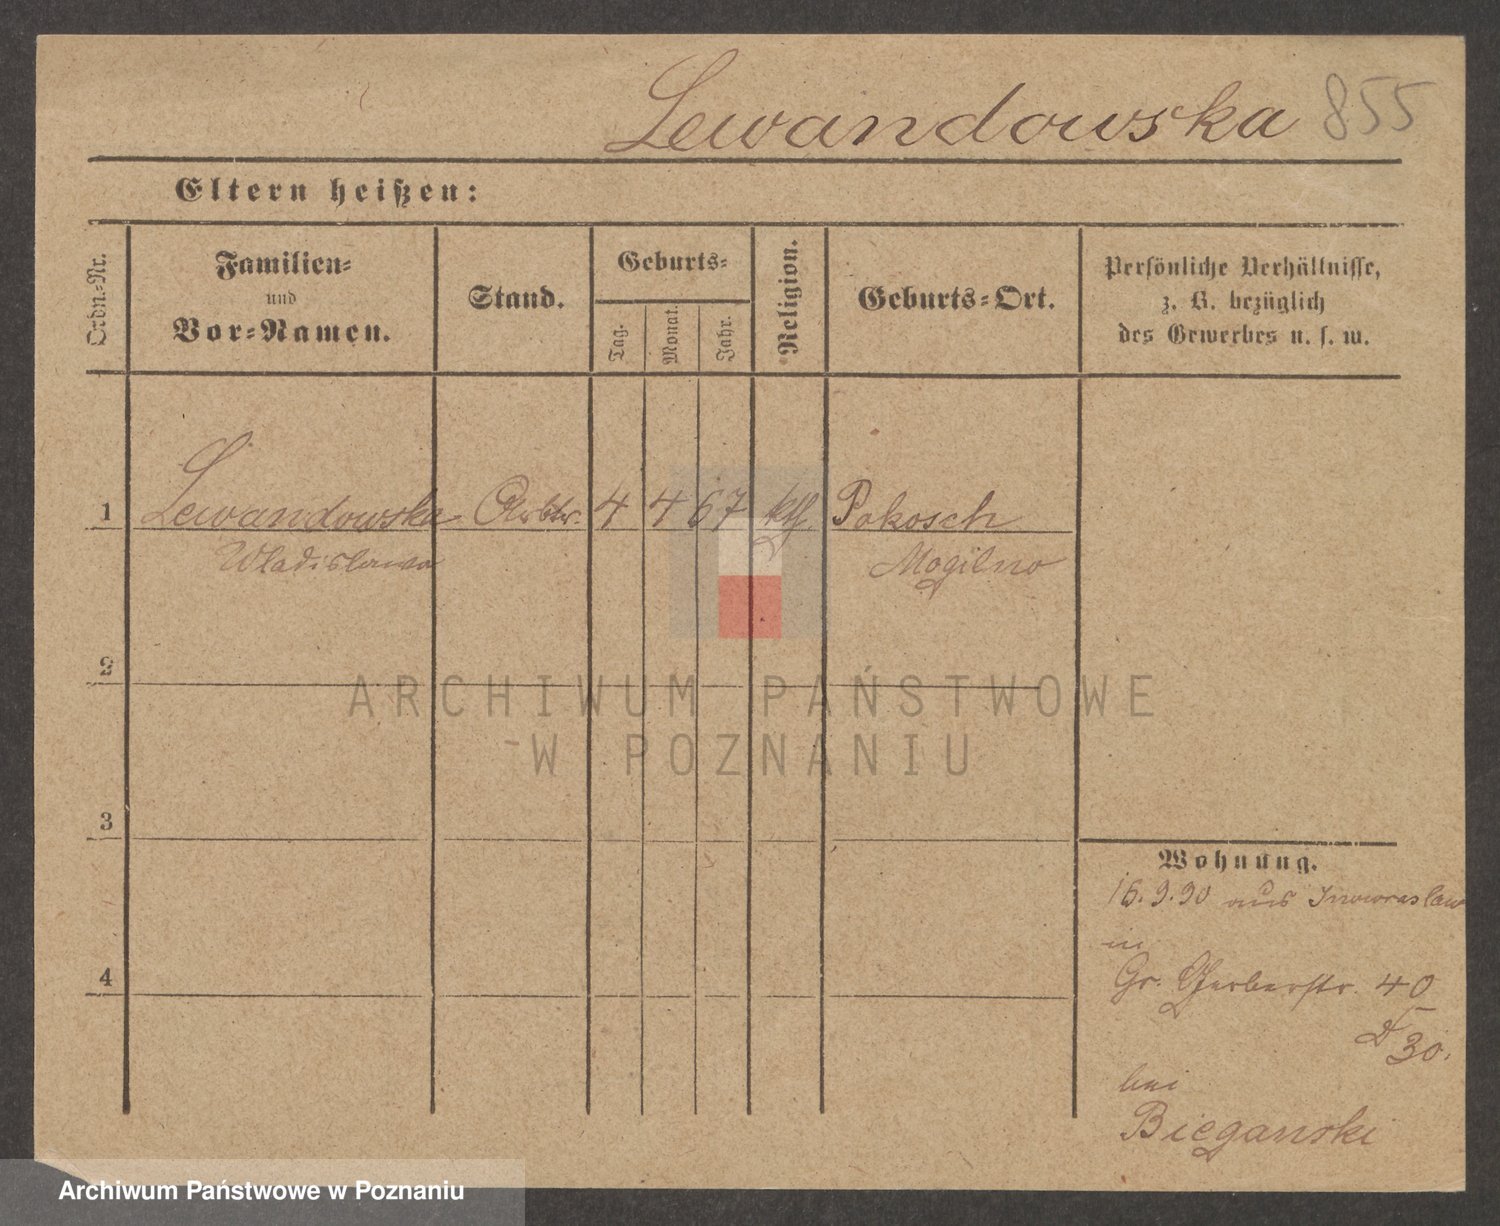 Lewandowska 855
Eltern heißen:
Ordn.-Nr.
Familien-
und
Vor-Namen.
Stand.
Geburts-
Tag.
Monat.
Jahr.
Religion.
Geburts-Ort.
Persönliche Verhältnisse,
z. B. bezüglich
des Gewerbes u. s. w.
1 Lewandowska Arbtr. 4 4 67 kth. Pakosch
Wladislawa Mogilno
2
3
4
Wohnung.
16.9.90 aus Inowraslaw
in
Gr. Gerberstr. 40
30.
bei
Bieganski
ARCHIWUM PAŃSTWOWE
W POZNANIU
Archiwum Państwowe w Poznaniu